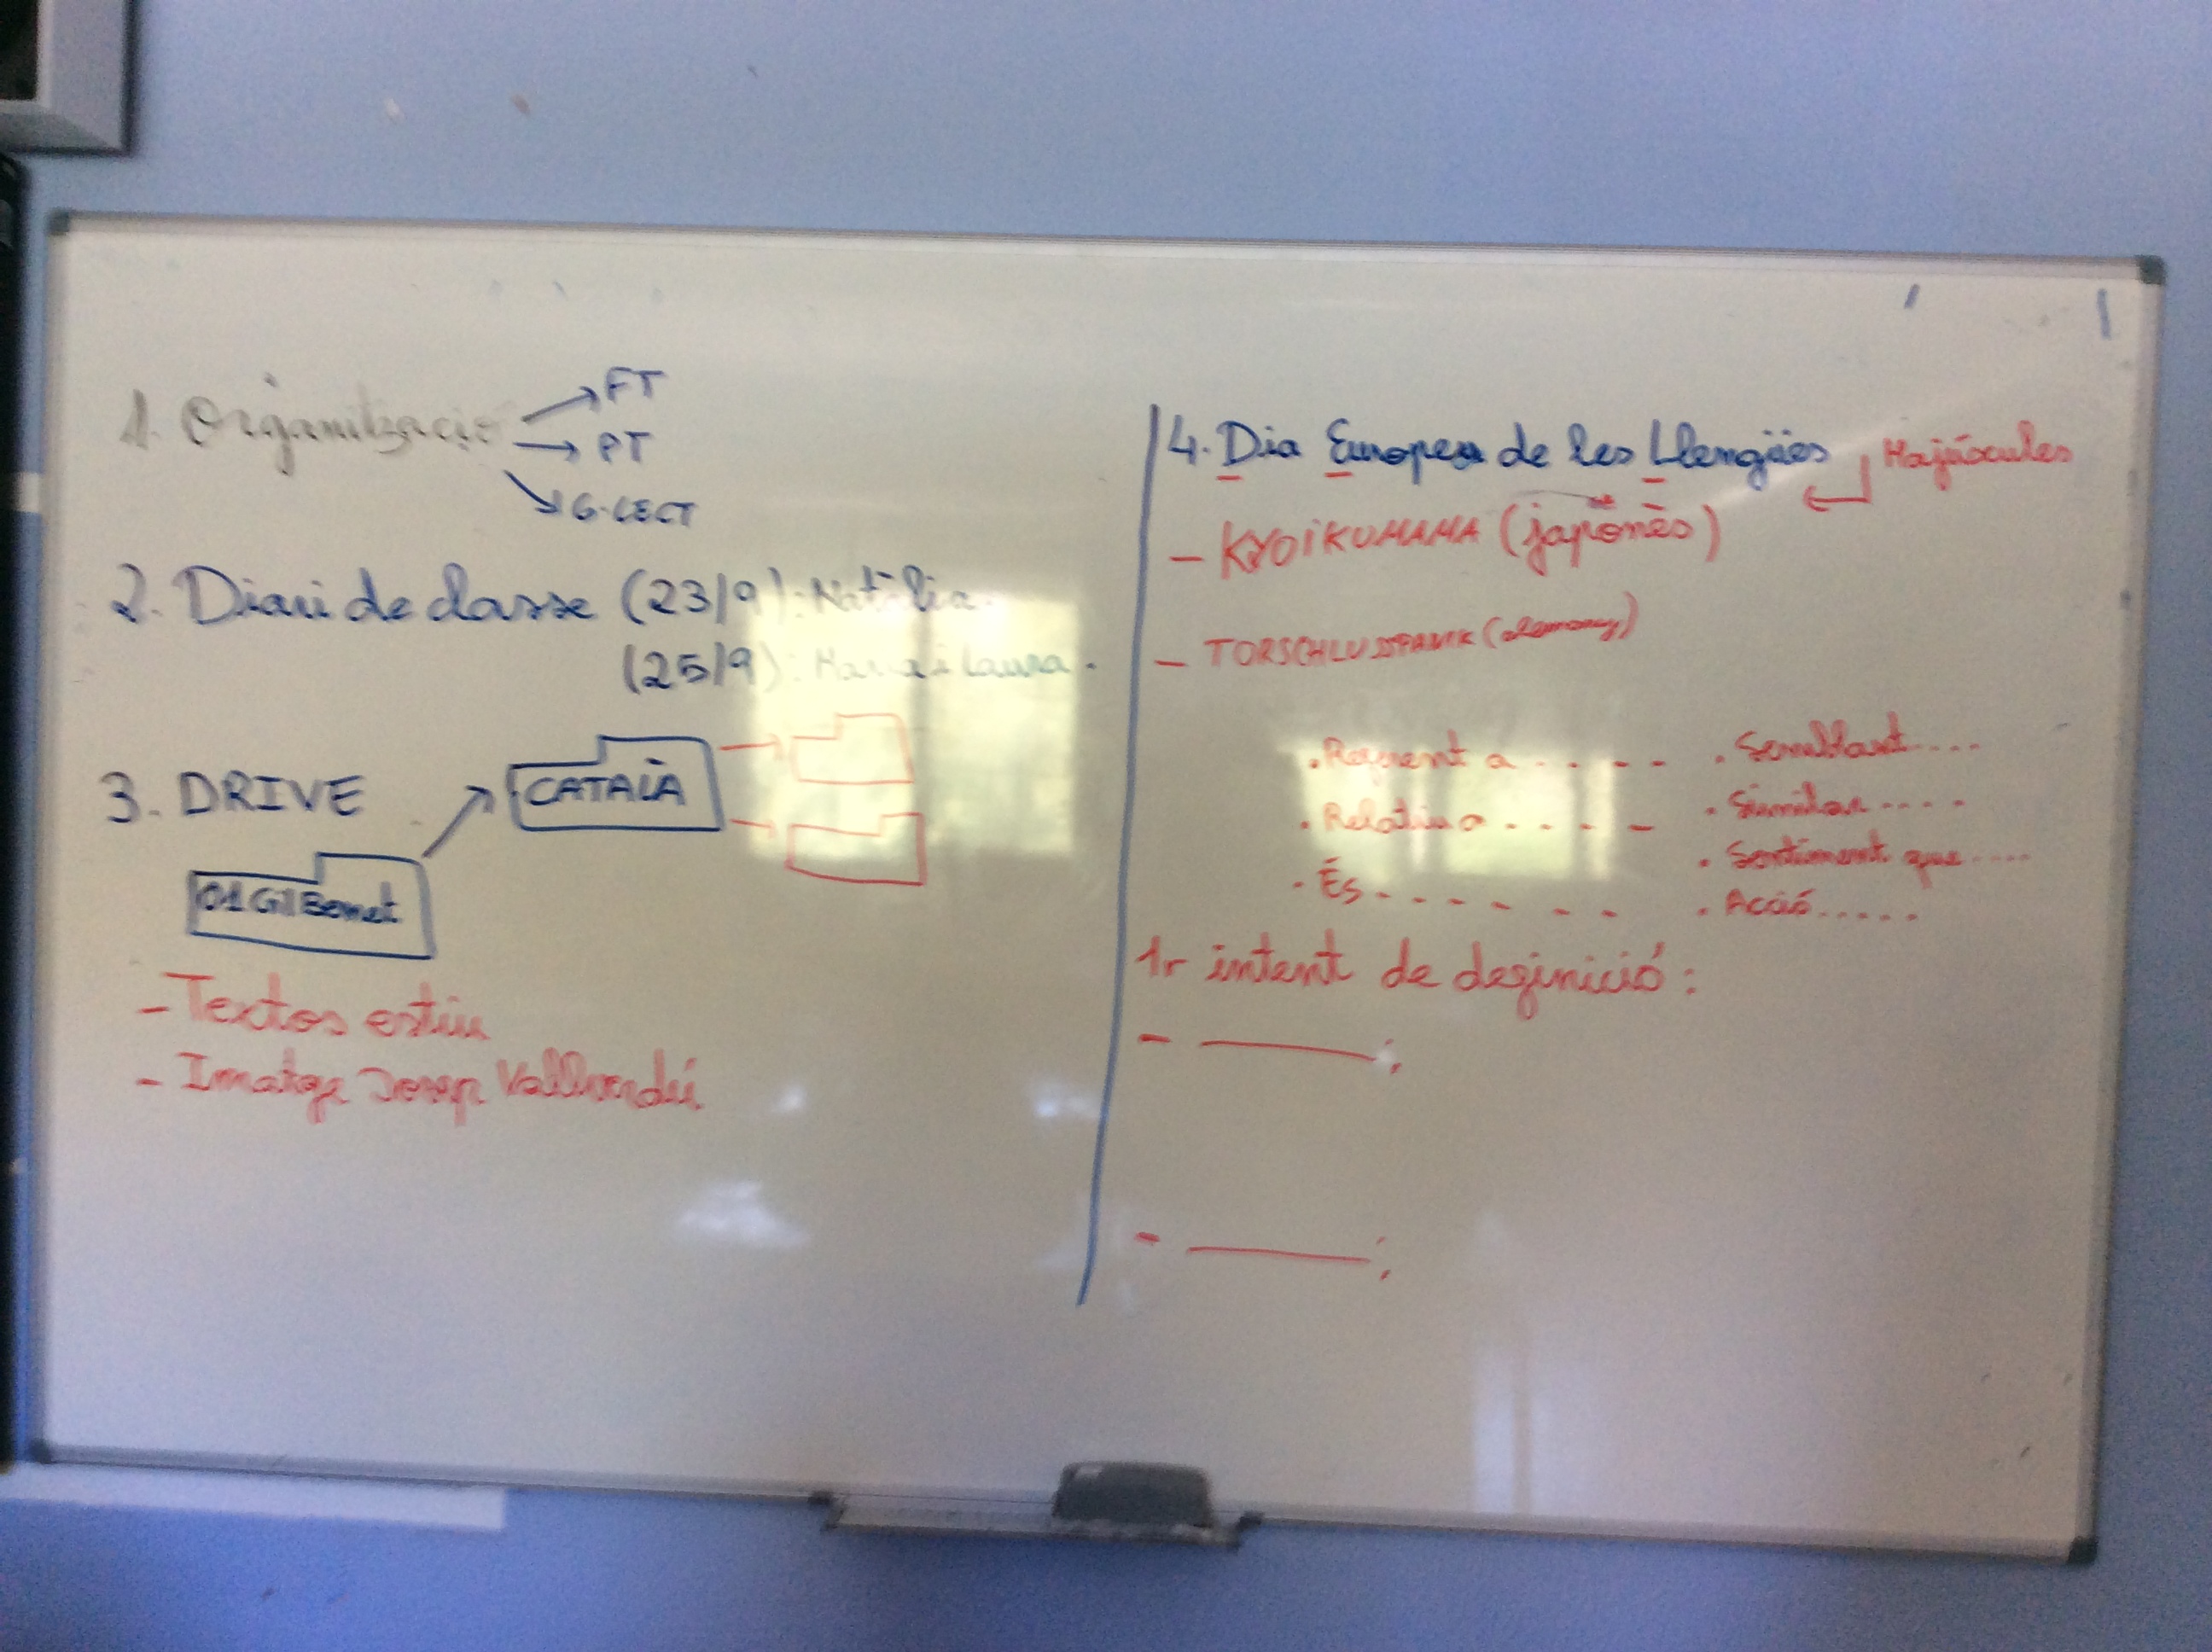 1. Organització → FT
→ PT
→ G-LECT
2. Diari de classe (23/9): Natàlia.
(25/9): Maria i Laura.
3. DRIVE
CATALÀ
01 Gil Bernet
- Textos estiu
- Imatge Josep Vallverdú
4. Dia Europeu de les Llengües Majúscules
- KYOIKUMAMA (japonès)
- TORSCHLUSSPANIK (alemany)
. Referent a . . . . .
. Relatiu a . . . . .
. És . . . . . . .
. Semblant....
. Similar....
. Sentiment que....
. Acció.....
1r intent de definició:
- ______;
- ______;